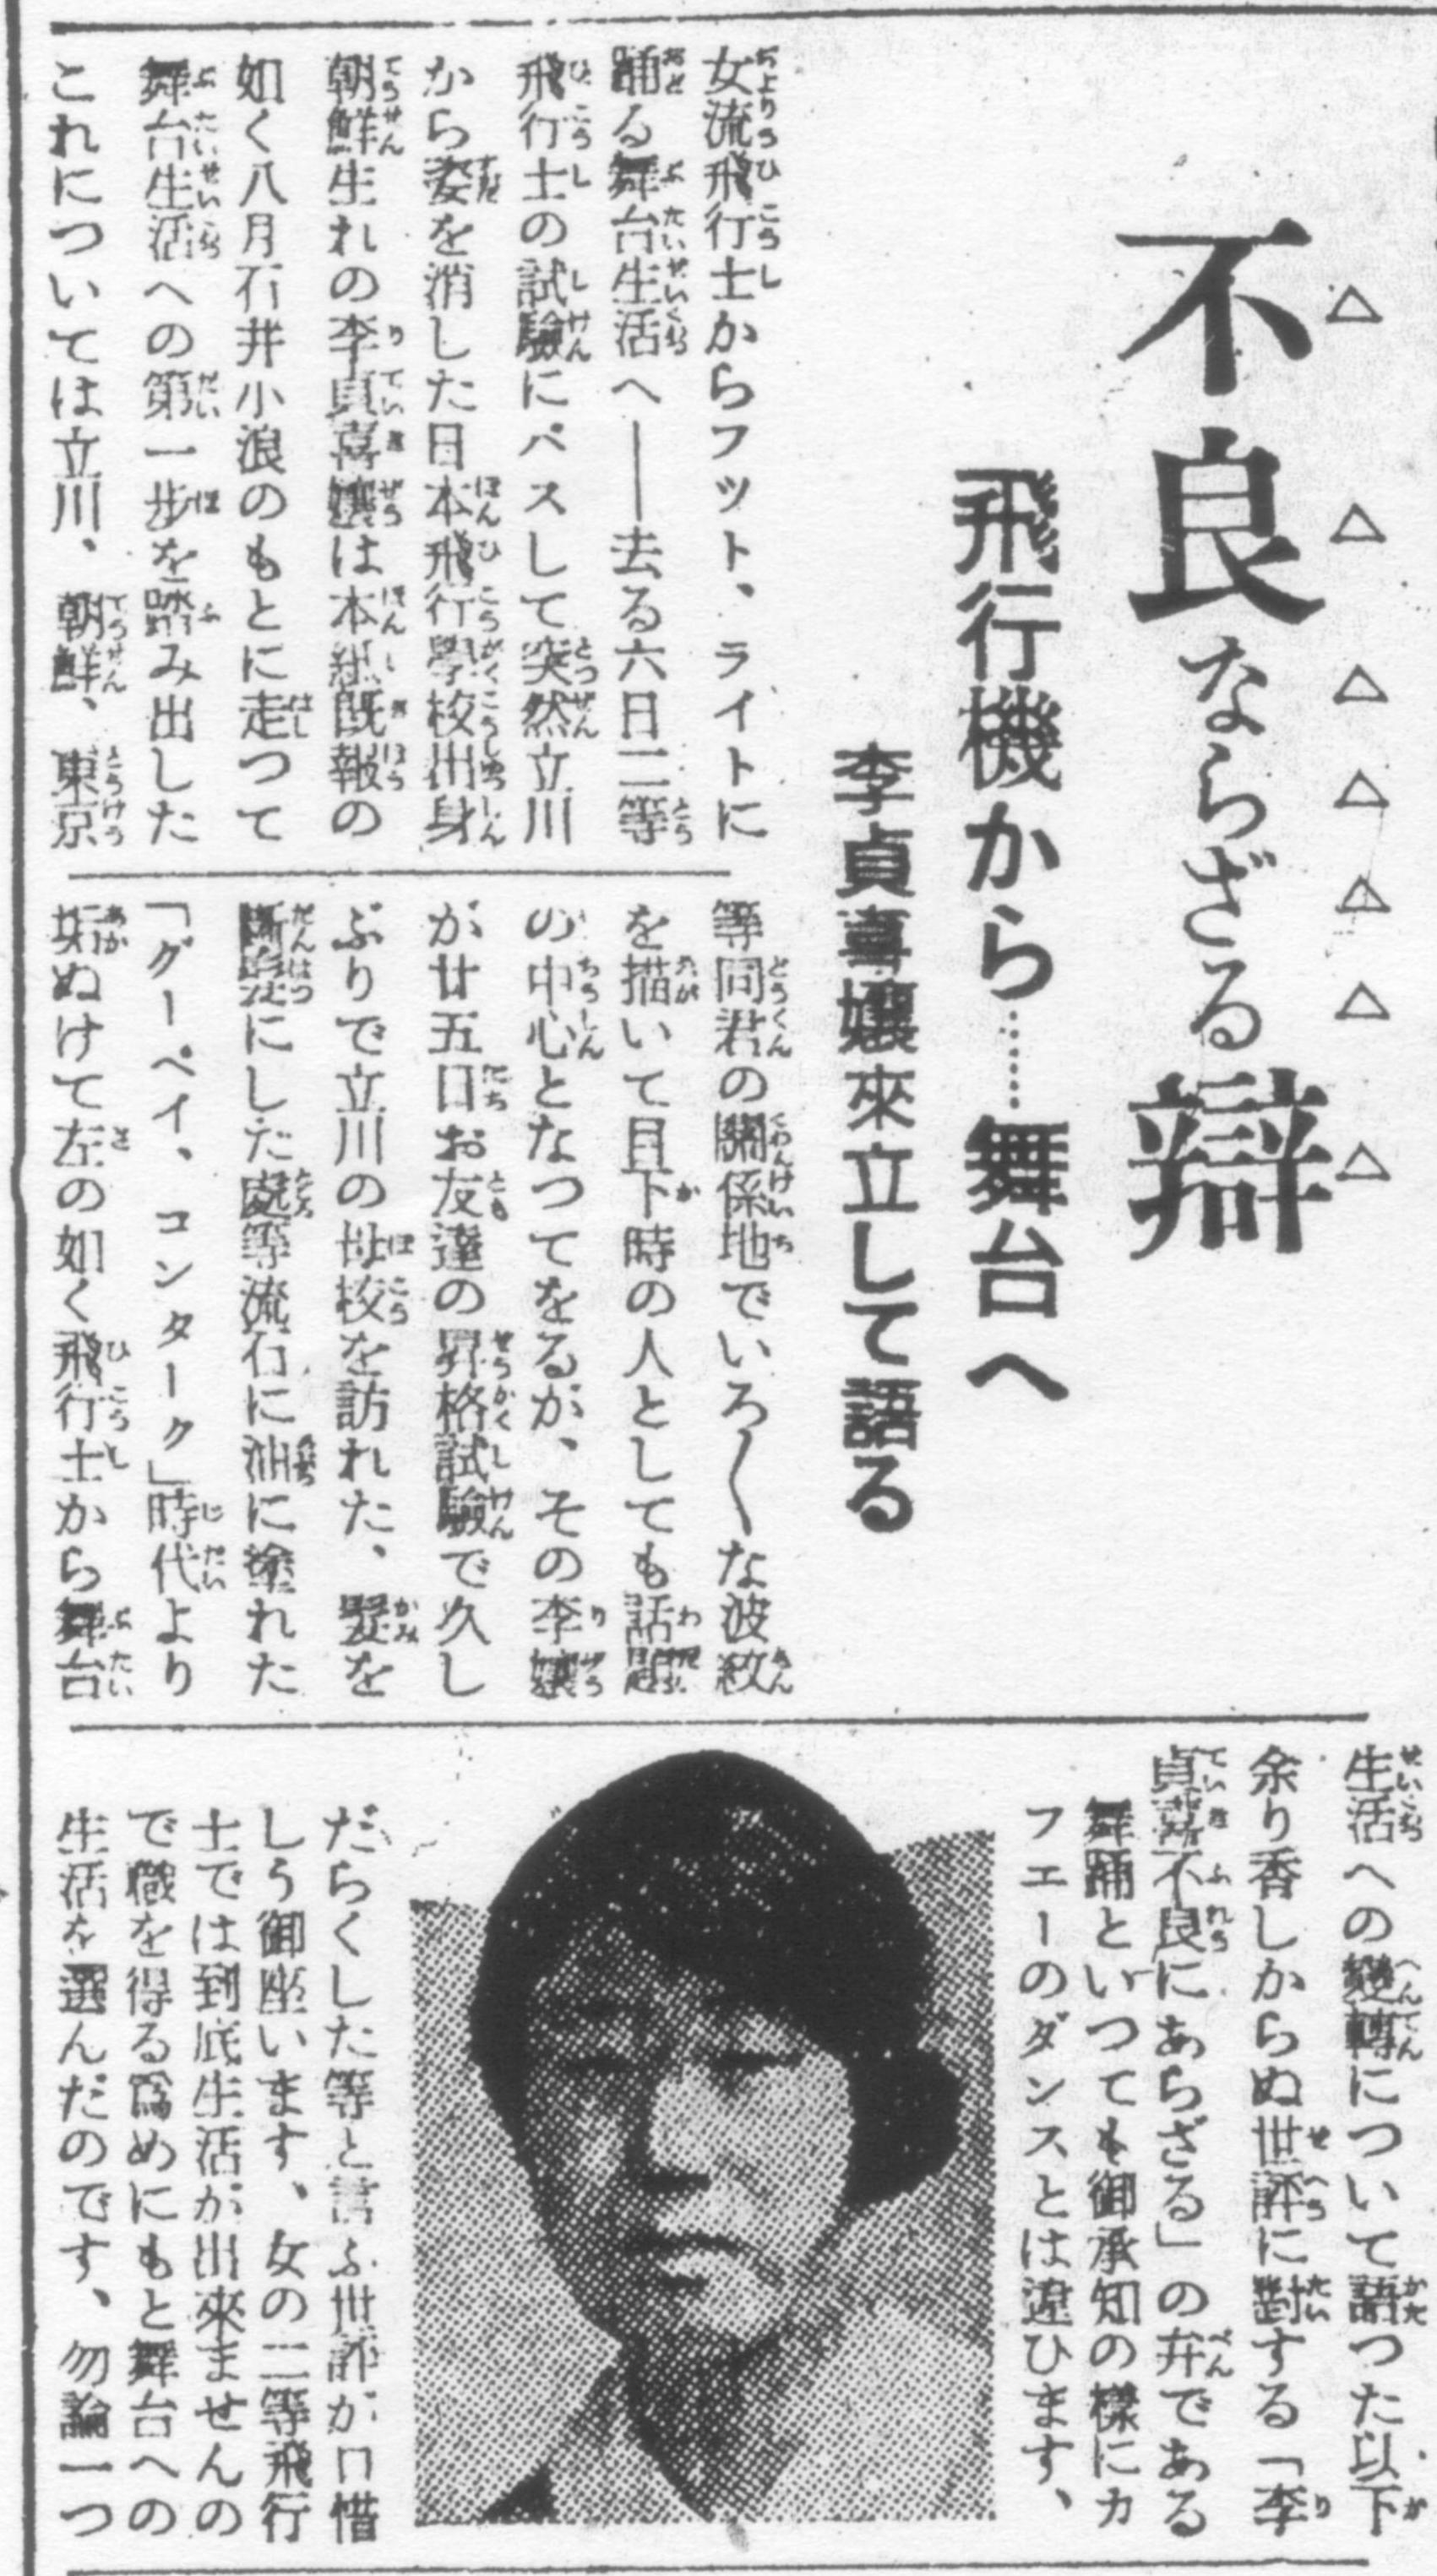 △△△△△△△
不良ならざる辯
飛行機から……舞台へ
李貞喜孃來立して語る
女流飛行士からフット、ライトに
踊る舞台生活へ――去る六日二等
飛行士の試驗にパスして突然立川
から姿を消した日本飛行學校出身
朝鮮生れの李貞喜孃は本紙既報の
如く八月石井小浪のもとに走つて
舞台生活への第一步を踏み出した
これについては立川、朝鮮、東京
等同君の關係地でいろ〱な波紋
を描いて目下時の人としても話題
の中心となつてをるが、その李孃
が廿五日お友達の昇格試驗で久し
ぶりで立川の母校を訪れた、髮を
斷髮にした處等流石に油に塗れた
「グーペイ、コンターク」時代より
垢ぬけて左の如く飛行士から舞台
生活への變轉について語つた以下
余り香しからぬ世評に對する「李
貞喜不良にあらざる」の弁である
舞踊といつても御承知の樣にカ
フエーのダンスとは違ひます、
だらくした等と言ふ世評が口惜
しう御座います、女の二等飛行
士では到底生活が出來ませんの
で職を得る爲めにもと舞台への
生活を選んだのです、勿論一つ